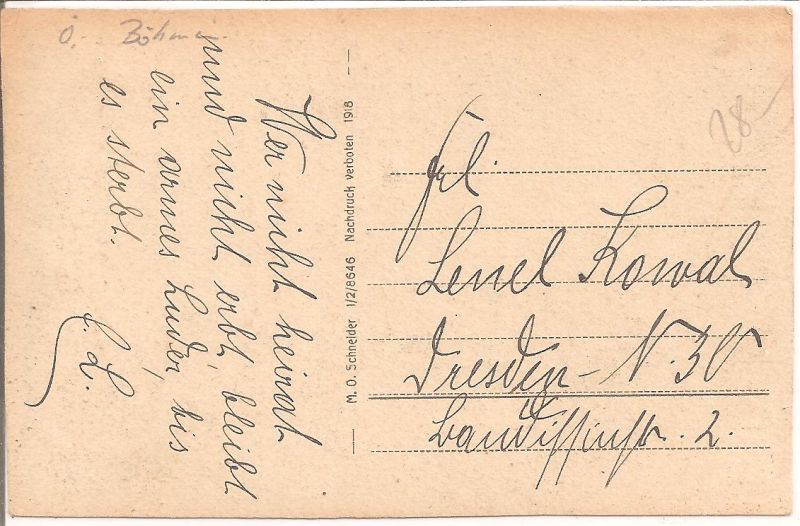 Ö. Böhmen
Wer nicht heirat
und nicht erbt, bleibt
ein armes Luder, bis
es sterbt.
C. L.
M. O. Schneider 1/2/8646 Nachdruck verboten 1918
28-
Frl.
Lenel Kowal
Dresden-N. 30
Baudissinstr. 2.